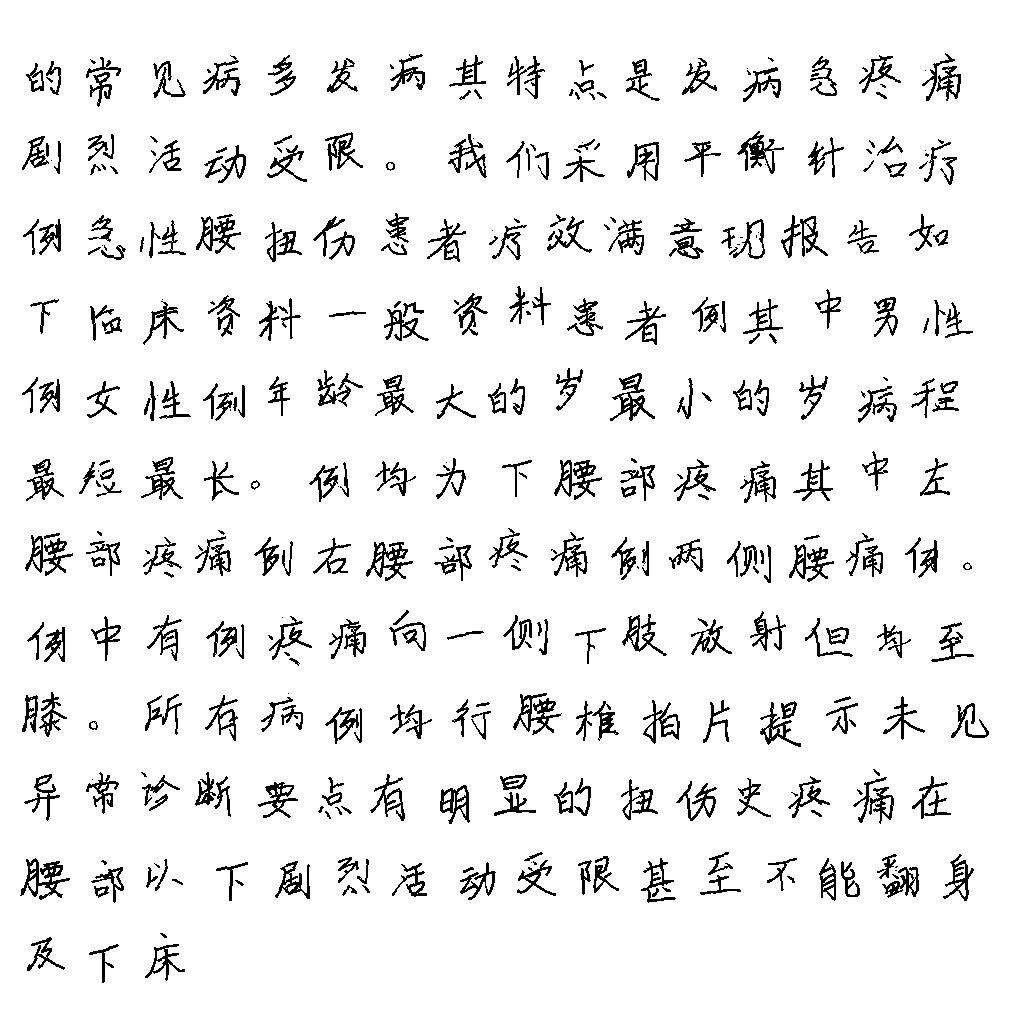 的常见病多发病其特点是发病急疼痛
剧烈活动受限。我们采用平衡针治疗
例急性腰扭伤患者疗效满意现报告如
下临床资料一般资料患者例其中男性
例女性例年龄最大的岁最小的岁病程
最短最长。例均为下腰部疼痛其中左
腰部疼痛例右腰部疼痛例两侧腰痛例。
例中有例疼痛向一侧下肢放射但均至
膝。所有病例均行腰椎拍片提示未见
异常诊断要点有明显的扭伤史疼痛在
腰部以下剧烈活动受限甚至不能翻身
及下床